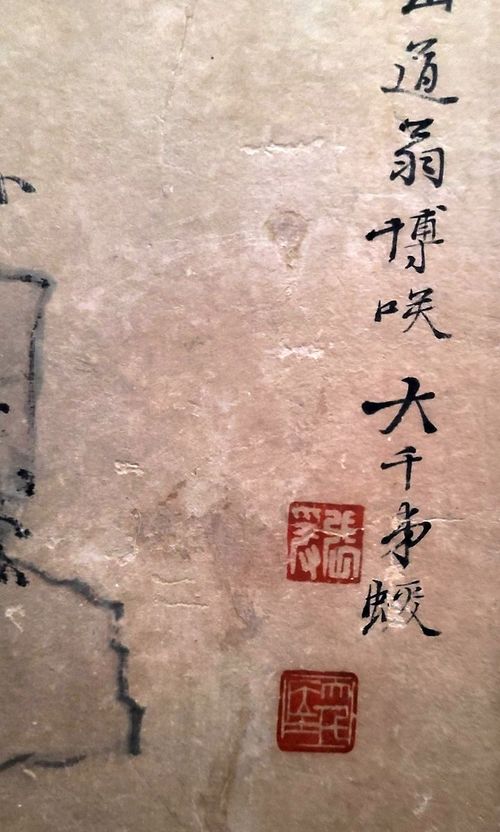 道翁博咲 大千弟蝯
張爰